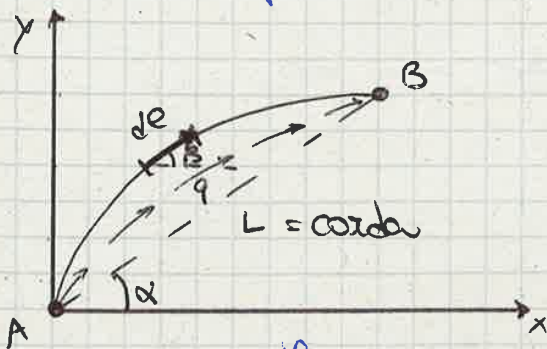 y
B
dl
β
q
L = corda
α
A
x